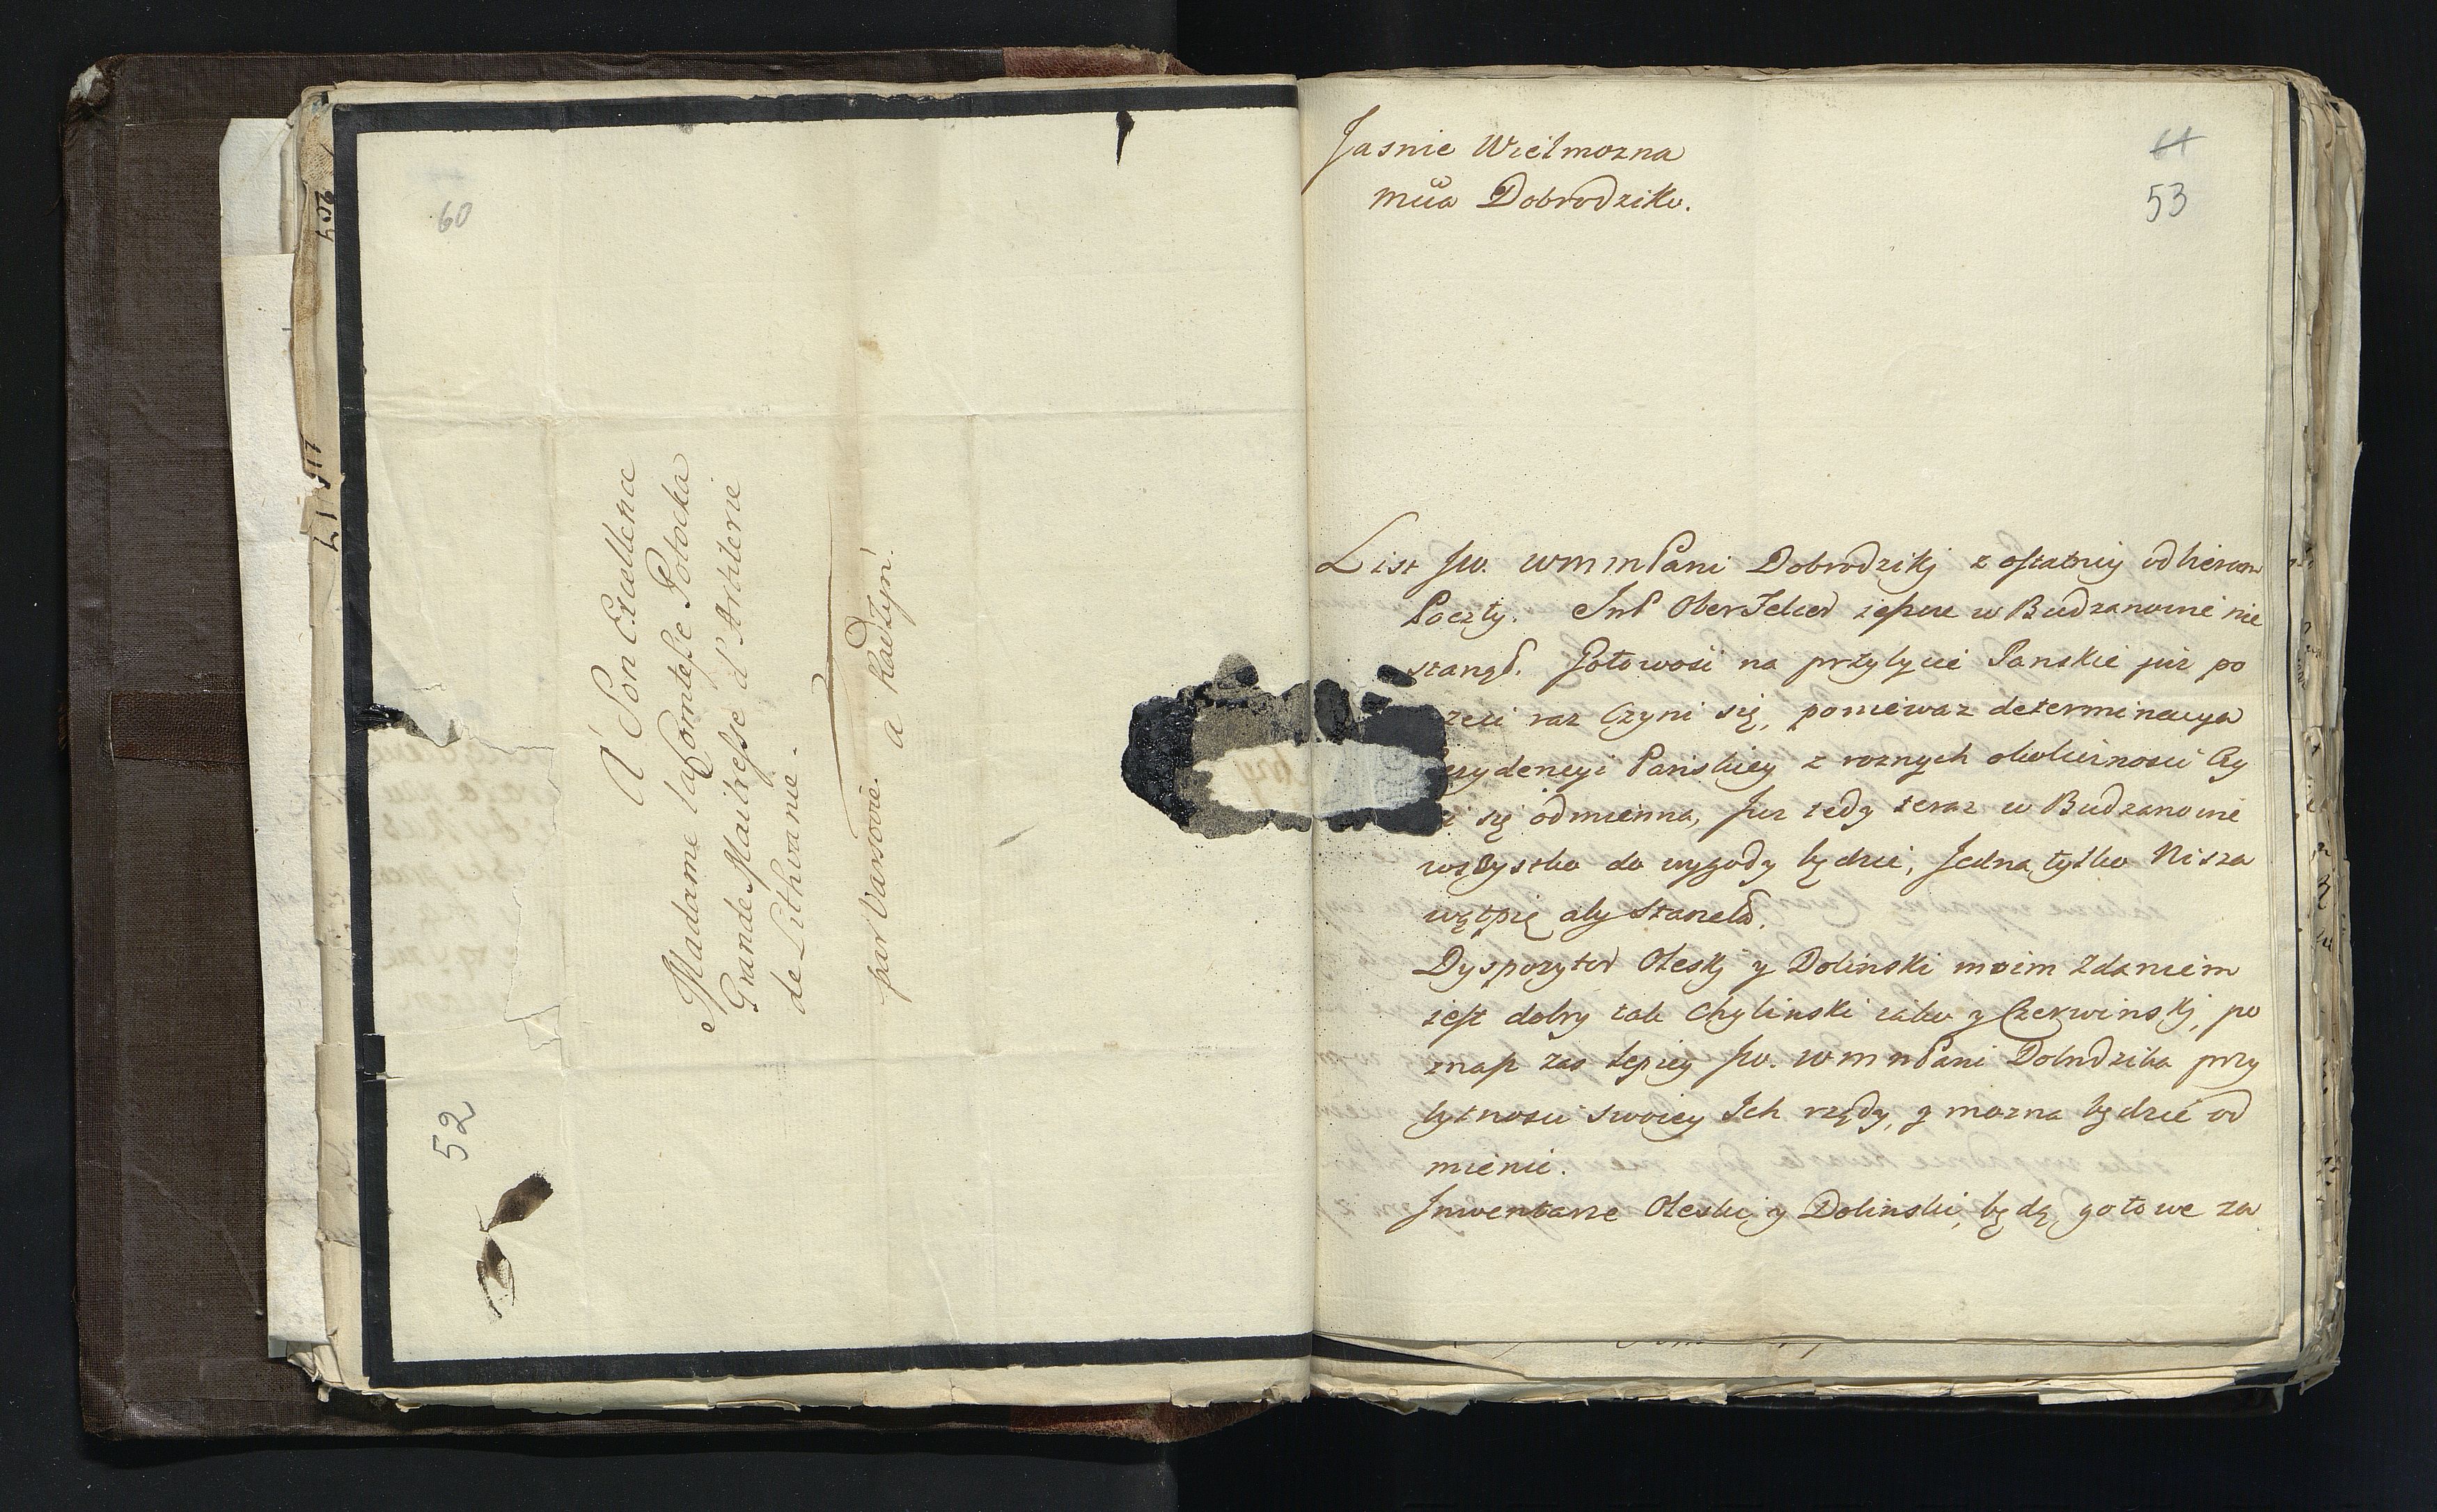 60
A Son Excellence
Madame la Comtesse Potocka
Grande Maitresse d'Artilerie
de Lithvanie.
par Varsovie. a Radzyn.
52
Jasnie Wielmozna
Dobrodziko.
61
53
List Jw. WMMPani Dobrodziki z ostatniey odbieram
Poczty. w Budzanowie nie
stanął. Gotowość na przybycie Panskie już po
raz Czyni się, poniewaz determinacya
Panskiey z roznych okolicznosci Czy
się odmienna, Juz tedy teraz w Budzanowie
wszystko do wygody będzie, Jedna tylko Nisza
wątpię aby staneła.
Dyspozytor Oleski y Dolinski moim Zdaniem
jest dobry tak Chylinski iako y Czerwinski, po
znasz zas lepiey Jw. WMMPani Dobrodzika przy
bytnosci swoiey Ich rządy, y mozna będzie od
mienic.
Inwentarze Oleski y Dolinski, będą gotowe za